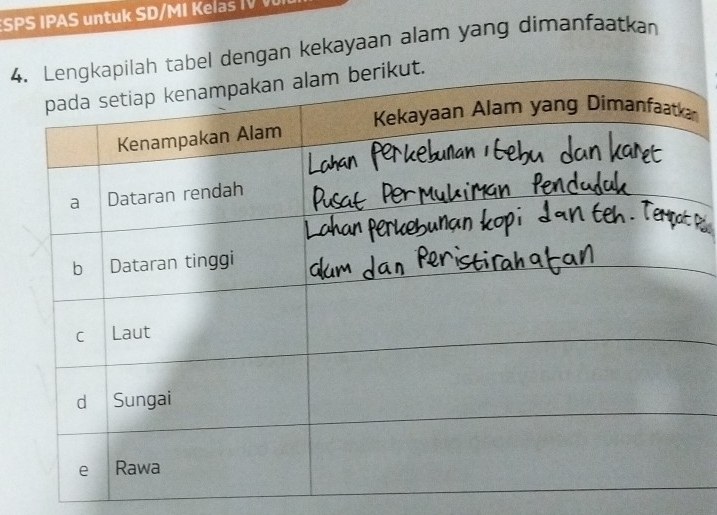 ESPS IPAS untuk SD/MI Kelas IV
4. Lengkapilah tabel dengan kekayaan alam yang dimanfaatkan
pada setiap kenampakan alam berikut.
Kenampakan Alam Kekayaan Alam yang Dimanfaatkan
a Dataran rendah
Lahan perkebunan, tebu dan karet
Pusat Permukiman Penduduk
b Dataran tinggi
Lahan perkebunan kopi dan teh. Tempat
alam dan Peristirahatan
c Laut
d Sungai
e Rawa